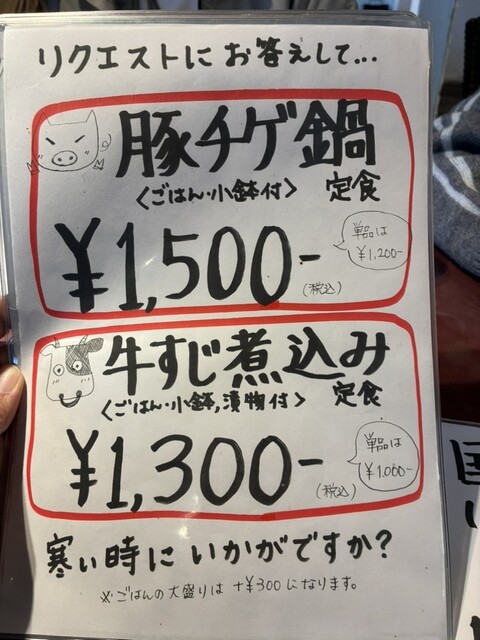 リクエストにお答えして...
豚チゲ鍋
<ごはん・小鉢付> 定食
¥1,500-
(税込)
単品は
¥1,200-
牛すじ煮込み
<ごはん・小鉢,漬物付> 定食
¥1,300-
(税込)
単品は
¥1,000-
寒い時にいかがですか?
※ごはんの大盛りは +¥300になります。
国